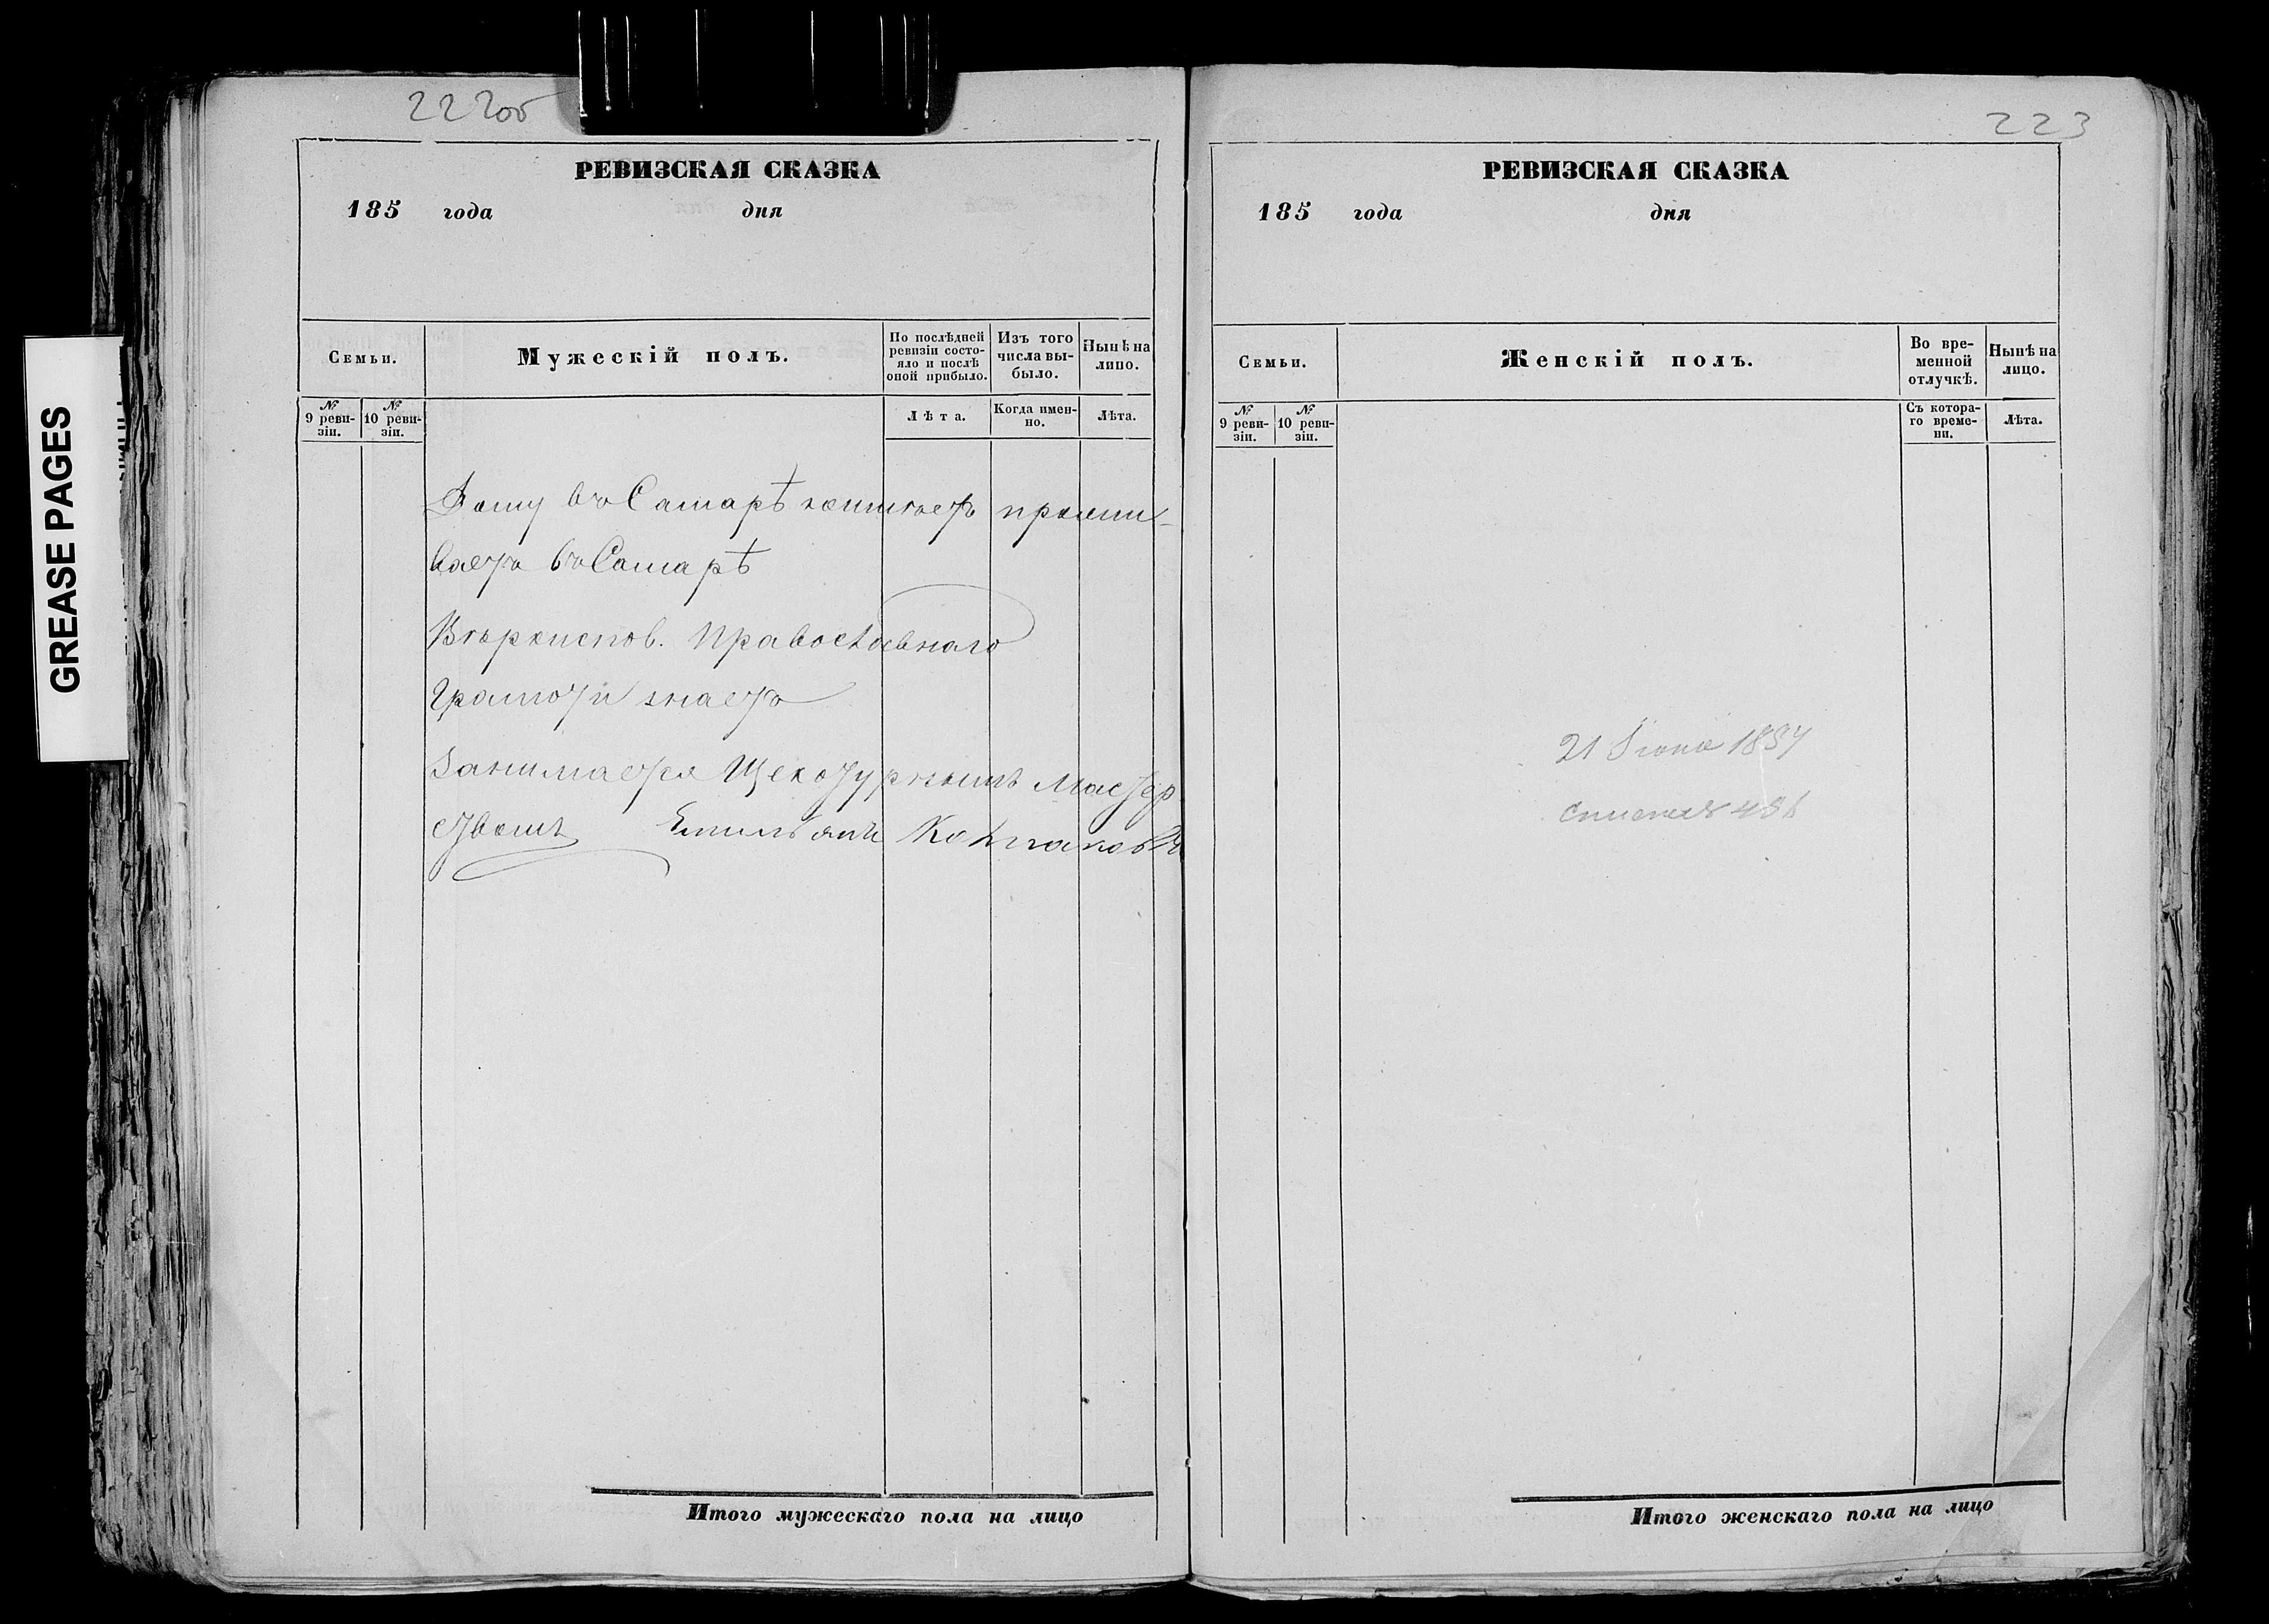 222об
РЕВИЗСКАЯ СКАЗКА
185 года дня
Семьи.
Мужескій полъ.
По послѣдней ревизіи состо-
яло и послѣ
оной прибыло.
Изъ того
числа вы-
было.
Нынѣ на
лицо.
№
9 реви-
зіи.
№
10 реви-
зіи.
Лѣта.
Когда имен-
но.
Лѣта.
Дому въ Самарѣ неимѣетъ прожи-
ваетъ въ Самарѣ
Вѣроиспов. Православнаго
Грамоти знаетъ
Занимается Щекотурнымъ Мастер
ствомъ Емильянъ Колчаковъ
Итого мужескаго пола на лицо
223
РЕВИЗСКАЯ СКАЗКА
185 года дня
Семьи.
Женскій полъ.
Во вре-
менной
отлучкѣ.
Нынѣ на
лицо.
№
9 реви-
зіи.
№
10 реви-
зіи.
Съ котора-
го време-
ни.
Лѣта.
21 Іюня 1857
Итого женскаго пола на лицо
GREASE PAGES